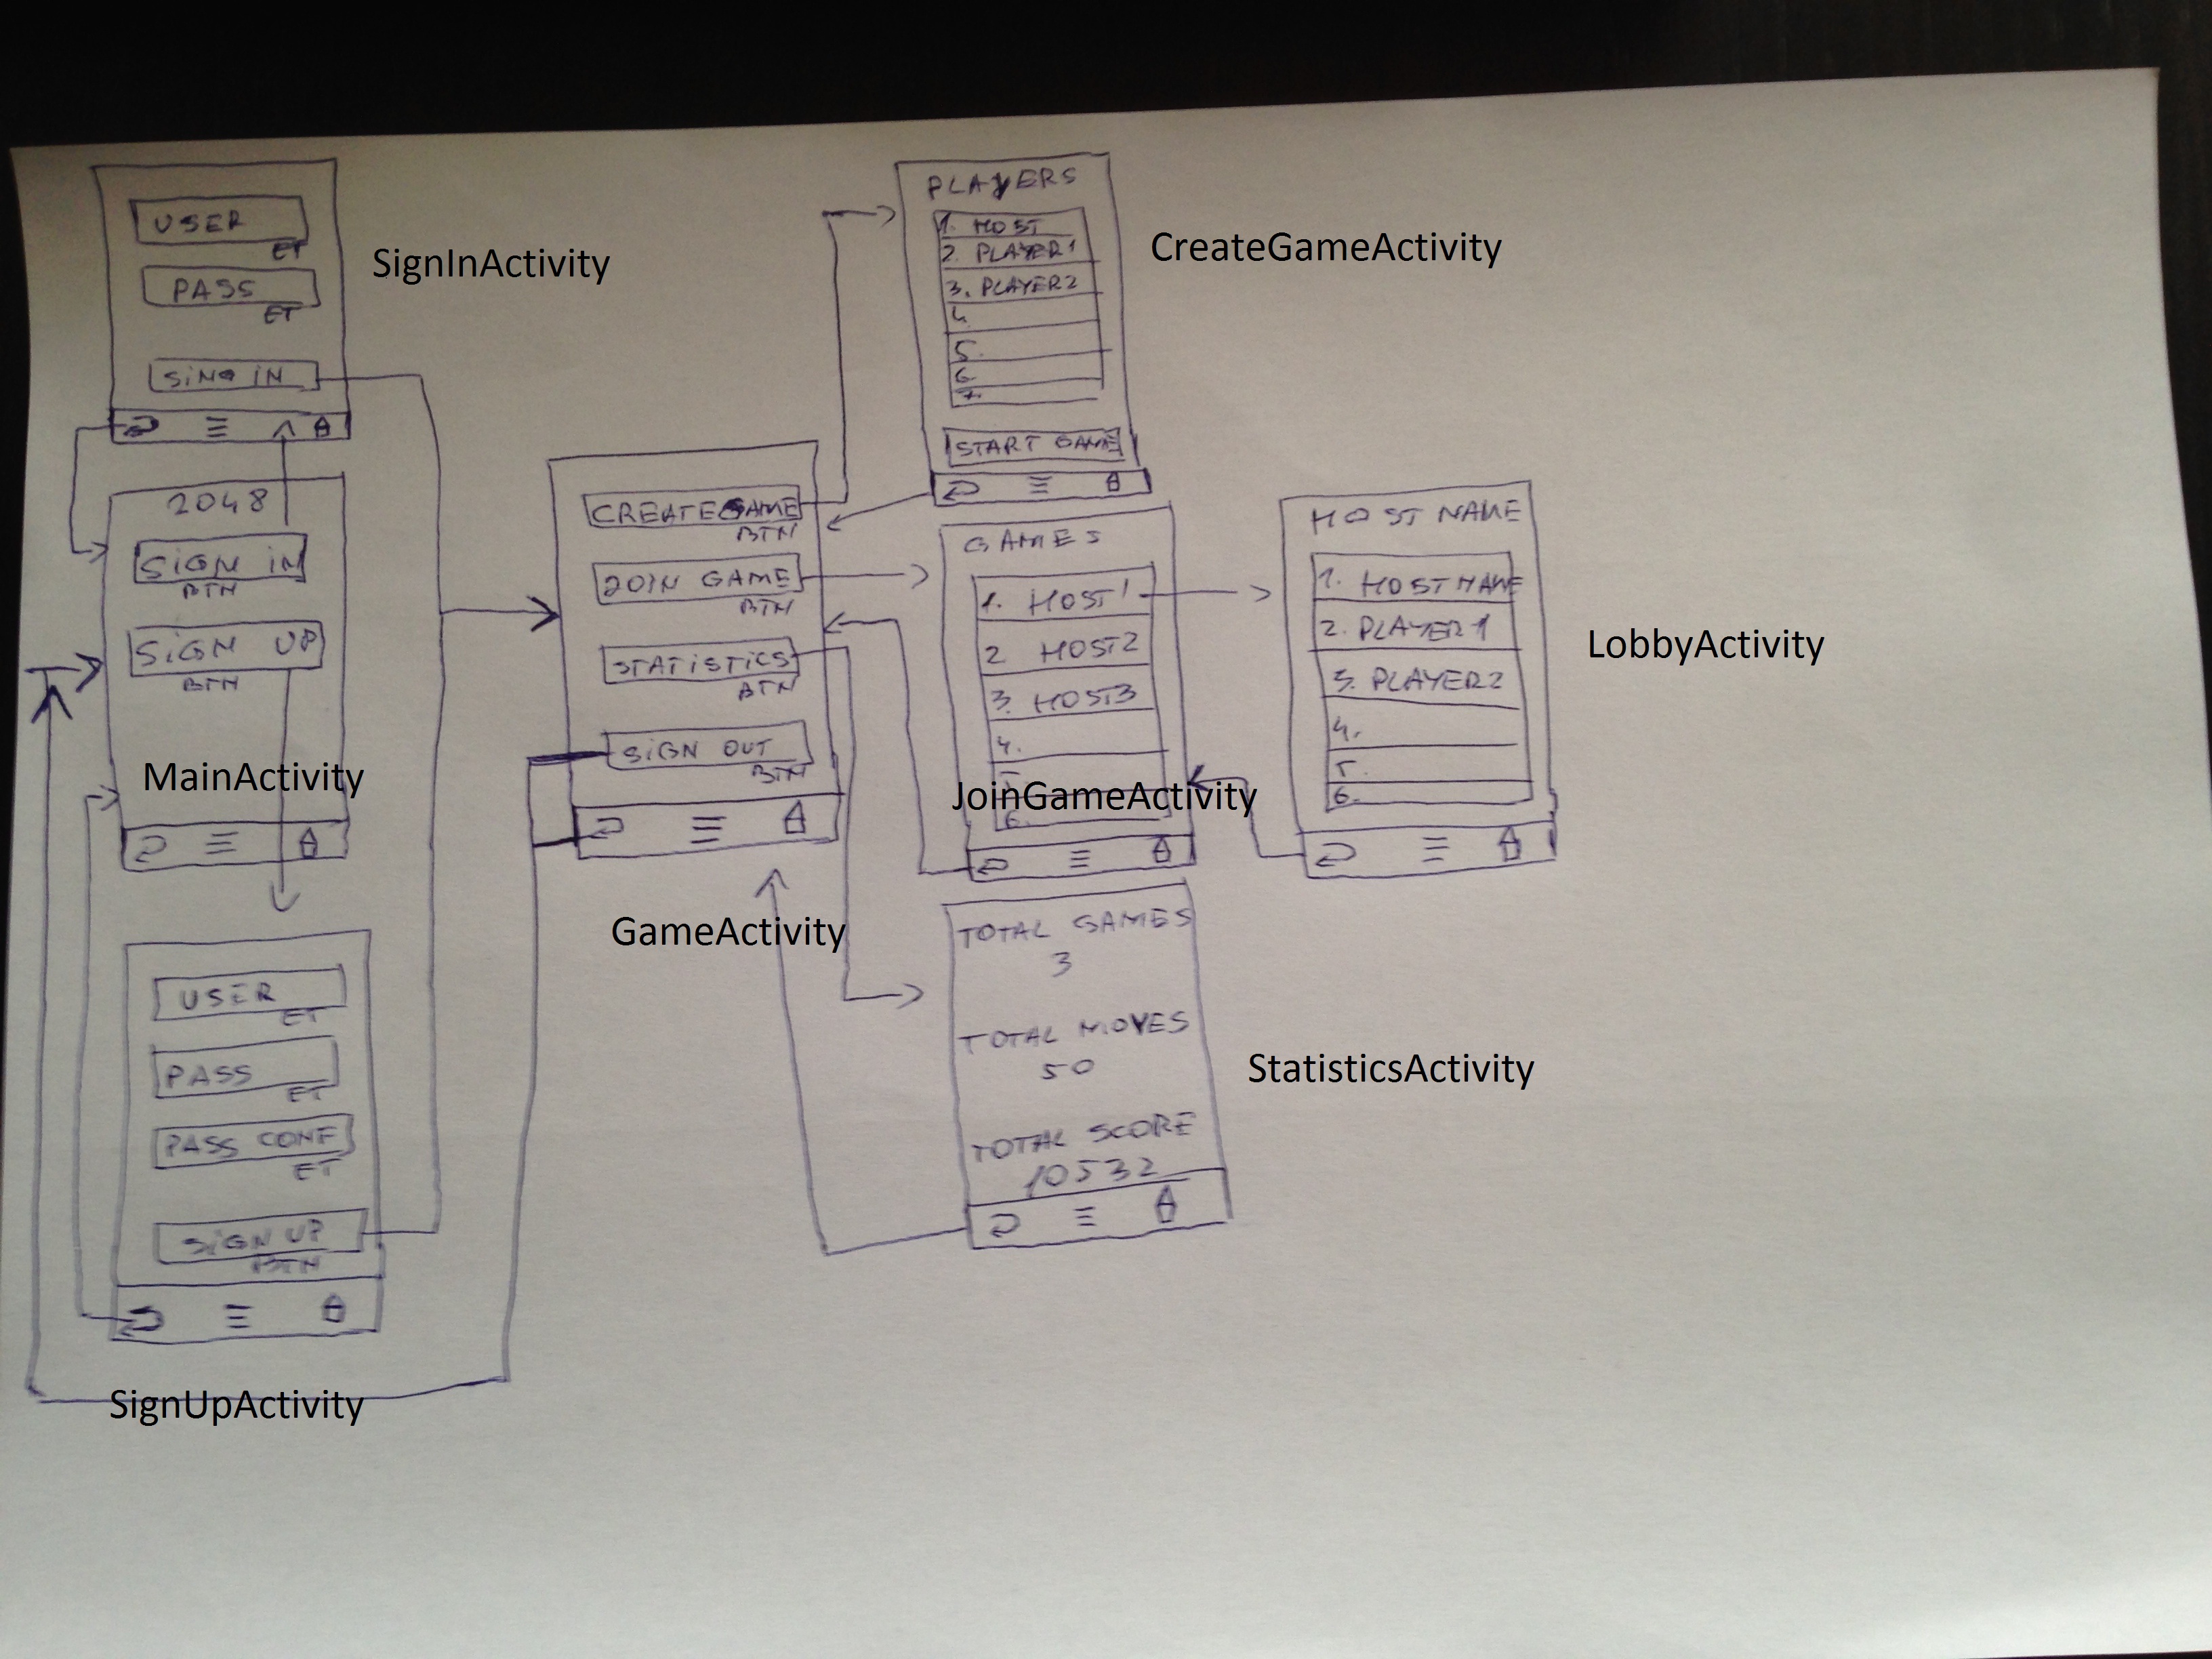 USER
ET
PASS
ET
SING IN
SignInActivity
2048
SIGN IN
BTN
SIGN UP
BTN
MainActivity
USER
ET
PASS
ET
PASS CONF
ET
SIGN UP
BTN
SignUpActivity
CREATE GAME
BTN
JOIN GAME
BTN
STATISTICS
BTN
SIGN OUT
BTN
GameActivity
PLAYERS
1. HOST
2. PLAYER1
3. PLAYER2
4.
5.
6.
7.
START GAME
CreateGameActivity
GAMES
1. HOST1
2 HOST2
3. HOST3
4.
5.
6.
JoinGameActivity
HOST NAME
1. HOST NAME
2. PLAYER1
3. PLAYER2
4.
5.
6.
LobbyActivity
TOTAL GAMES
3
TOTAL MOVES
50
TOTAL SCORE
10532
StatisticsActivity